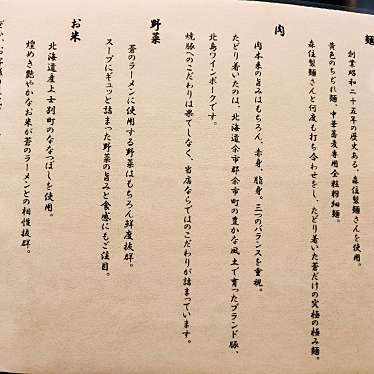 麺
創業昭和二十五年の歴史ある、森住製麺さんを使用。
黄色のちぢれ麺、中華蕎麦専用全粒粉細麺。
森住製麺さんと何度も打ち合わせをし、たどり着いた蒼だけの究極の極み麺。
肉
肉本来の旨みはもちろん、赤身、脂身。三つのバランスを重視。
たどり着いたのは、北海道余市郡余市町の豊かな風土で育ったブランド豚、
北島ワインポークです。
焼豚へのこだわりは果てしなく、当店ならではのこだわりが詰まっています。
野菜
蒼のラーメンに使用する野菜はもちろん鮮度抜群。
スープにギュッと詰まった野菜の旨みと食感にもご注目。
お米
北海道産上士別町のななつぼしを使用。
煌めき艶やかなお米が蒼のラーメンとの相性抜群。